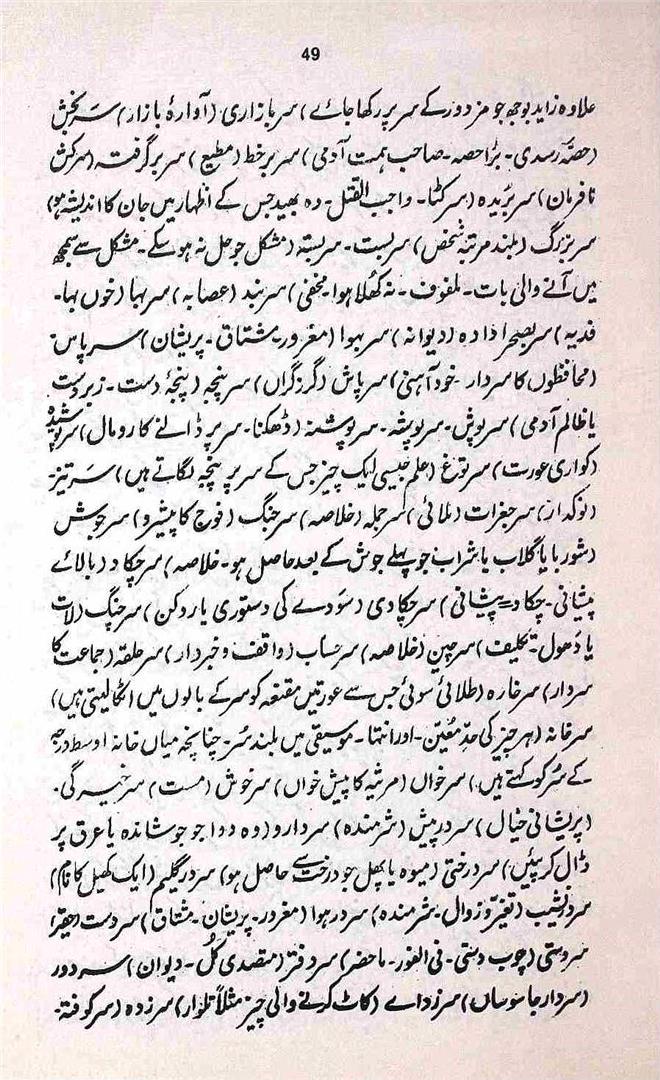 49
علاوہ زاید بوجھ جو مزدور کے سر پر رکھا جائے) سر بازاری (آوارۂ بازار) سر بخش
(حصۂ رسدی۔ بڑا حصہ۔ صاحب ہمت آدمی) سر بر خط (مطیع) سر بر گرفتہ (سرکش
نافرمان) سر بریدہ (سر کٹا۔ واجب القتل۔ وہ بھید جس کے اظہار میں جان کا اندیشہ ہو)
سر بزرگ (بلند مرتبہ شخص) سر بست۔ سر بستہ (مشکل جو حل نہ ہو سکے۔ مشکل سے سمجھ
میں آنے والی بات۔ ملفوف۔ نہ کھلا ہوا۔ مخفی) سر بند (عصابہ) سر بہا (خوں بہا۔
فدیہ) سر بصحرا دادہ (دیوانہ) سر بہوا (مغرور۔ مشتاق۔ پریشان) سر پاس
(محافظوں کا سردار۔ خود آہنی) سر پاش (گرز گراں) سر پنجہ (پنجۂ دست۔ زبردست
یا ظالم آدمی) سر پوش۔ سر پوشہ۔ سر پوشنہ (ڈھکنا۔ سر پر ڈالنے کا رومال) سر پوشیدہ
(کواری عورت) سر توغ (علم جیسی ایک چیز جس کے سر پر پنجہ لگاتے ہیں) سر تیز
(نوکدار) سر جغرات (ملائی) سر جملہ (خلاصہ) سر جنگ (فوج کا پیشرو) سر جوش
(شوربا یا گلاب یا شراب جو پہلے جوش کے بعد حاصل ہو۔ خلاصہ) سر چکاد (بالائے
پیشانی۔ چکاد=پیشانی) سر چکادی (سودے کی دستوری یا روکن) سر چنگ (لات
یا دھول۔ تکلیف) سر چین (خلاصہ) سر حساب (واقف و خبردار) سر حلقہ (جماعت کا
سردار) سر خارہ (طلائی سوئی جس سے عورتیں مقنعہ کو سر کے بالوں میں اٹکا لیتی ہیں)
سر خانہ (ہر چیز کی حد معین۔ اور انتہا۔ موسیقی میں بلند سُر۔ چنانچہ میاں خانہ اوسط درجہ
کے سُر کو کہتے ہیں۔) سر خواں (مرثیہ کا پیش خواں) سر خوش (مست) سر خیرگی۔
(پریشانی خیال) سر در پیش (شرمندہ) سر دارو (وہ دوا جو جوشاندہ یا عرق پر
ڈال کر پئیں) سر درختی (میوہ یا پھل جو درخت سے حاصل ہو) سر در گلیم (ایک کھیل کا نام)
سر در نشیب (تغیر و زوال۔ شرمندہ) سر در ہوا (مغرور۔ پریشان۔ مشتاق) سر دست (حقیر)
سر دستی (چوب دستی۔ فی الفور۔ ماحضر) سر دفتر (متصدی کل۔ دیوان) سر دور
(سردار جاسوساں) سر زدائے (کاٹ کرنے والی چیز مثلاً تلوار) سر زدہ (سر کوفتہ۔